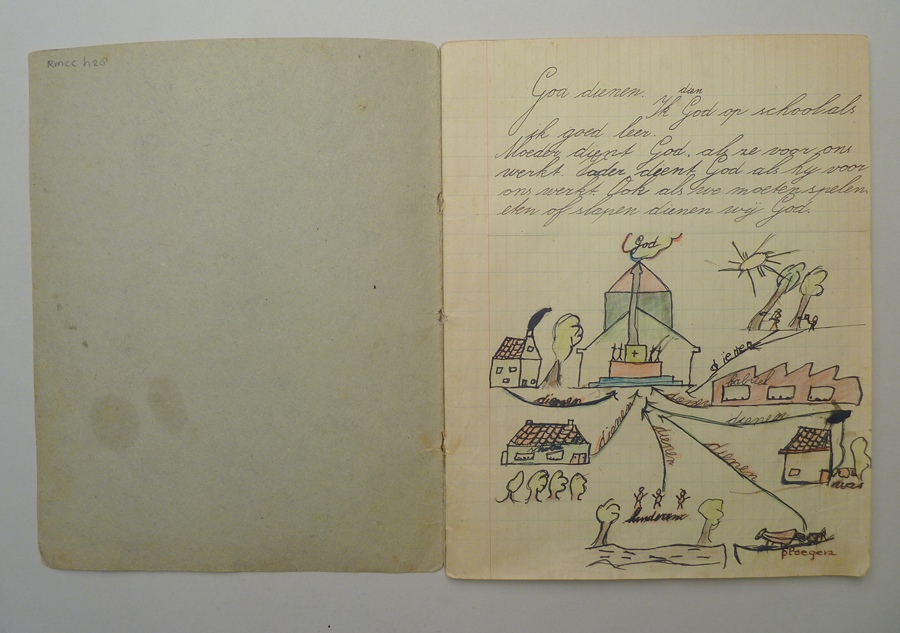 God dienen.
dien
Ik God op school als
ik goed leer.
Moeder dient God, als ze voor ons
werkt. Vader dient God als hy voor
ons werkt. Ook als we moeten spelen.
eten of slapen dienen wij God.
God
dienen
dienen
dienen
dienen
dienen
dienen
dienen
kinderen
ploegen